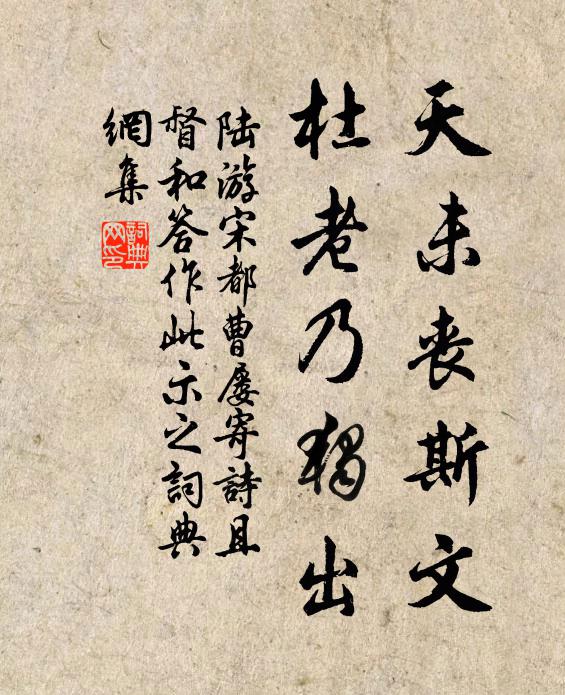 天未丧斯文
杜老乃獨出
陆游宋都曹屡寄詩且
督和答作此示之詞典
網集
詞典
网印